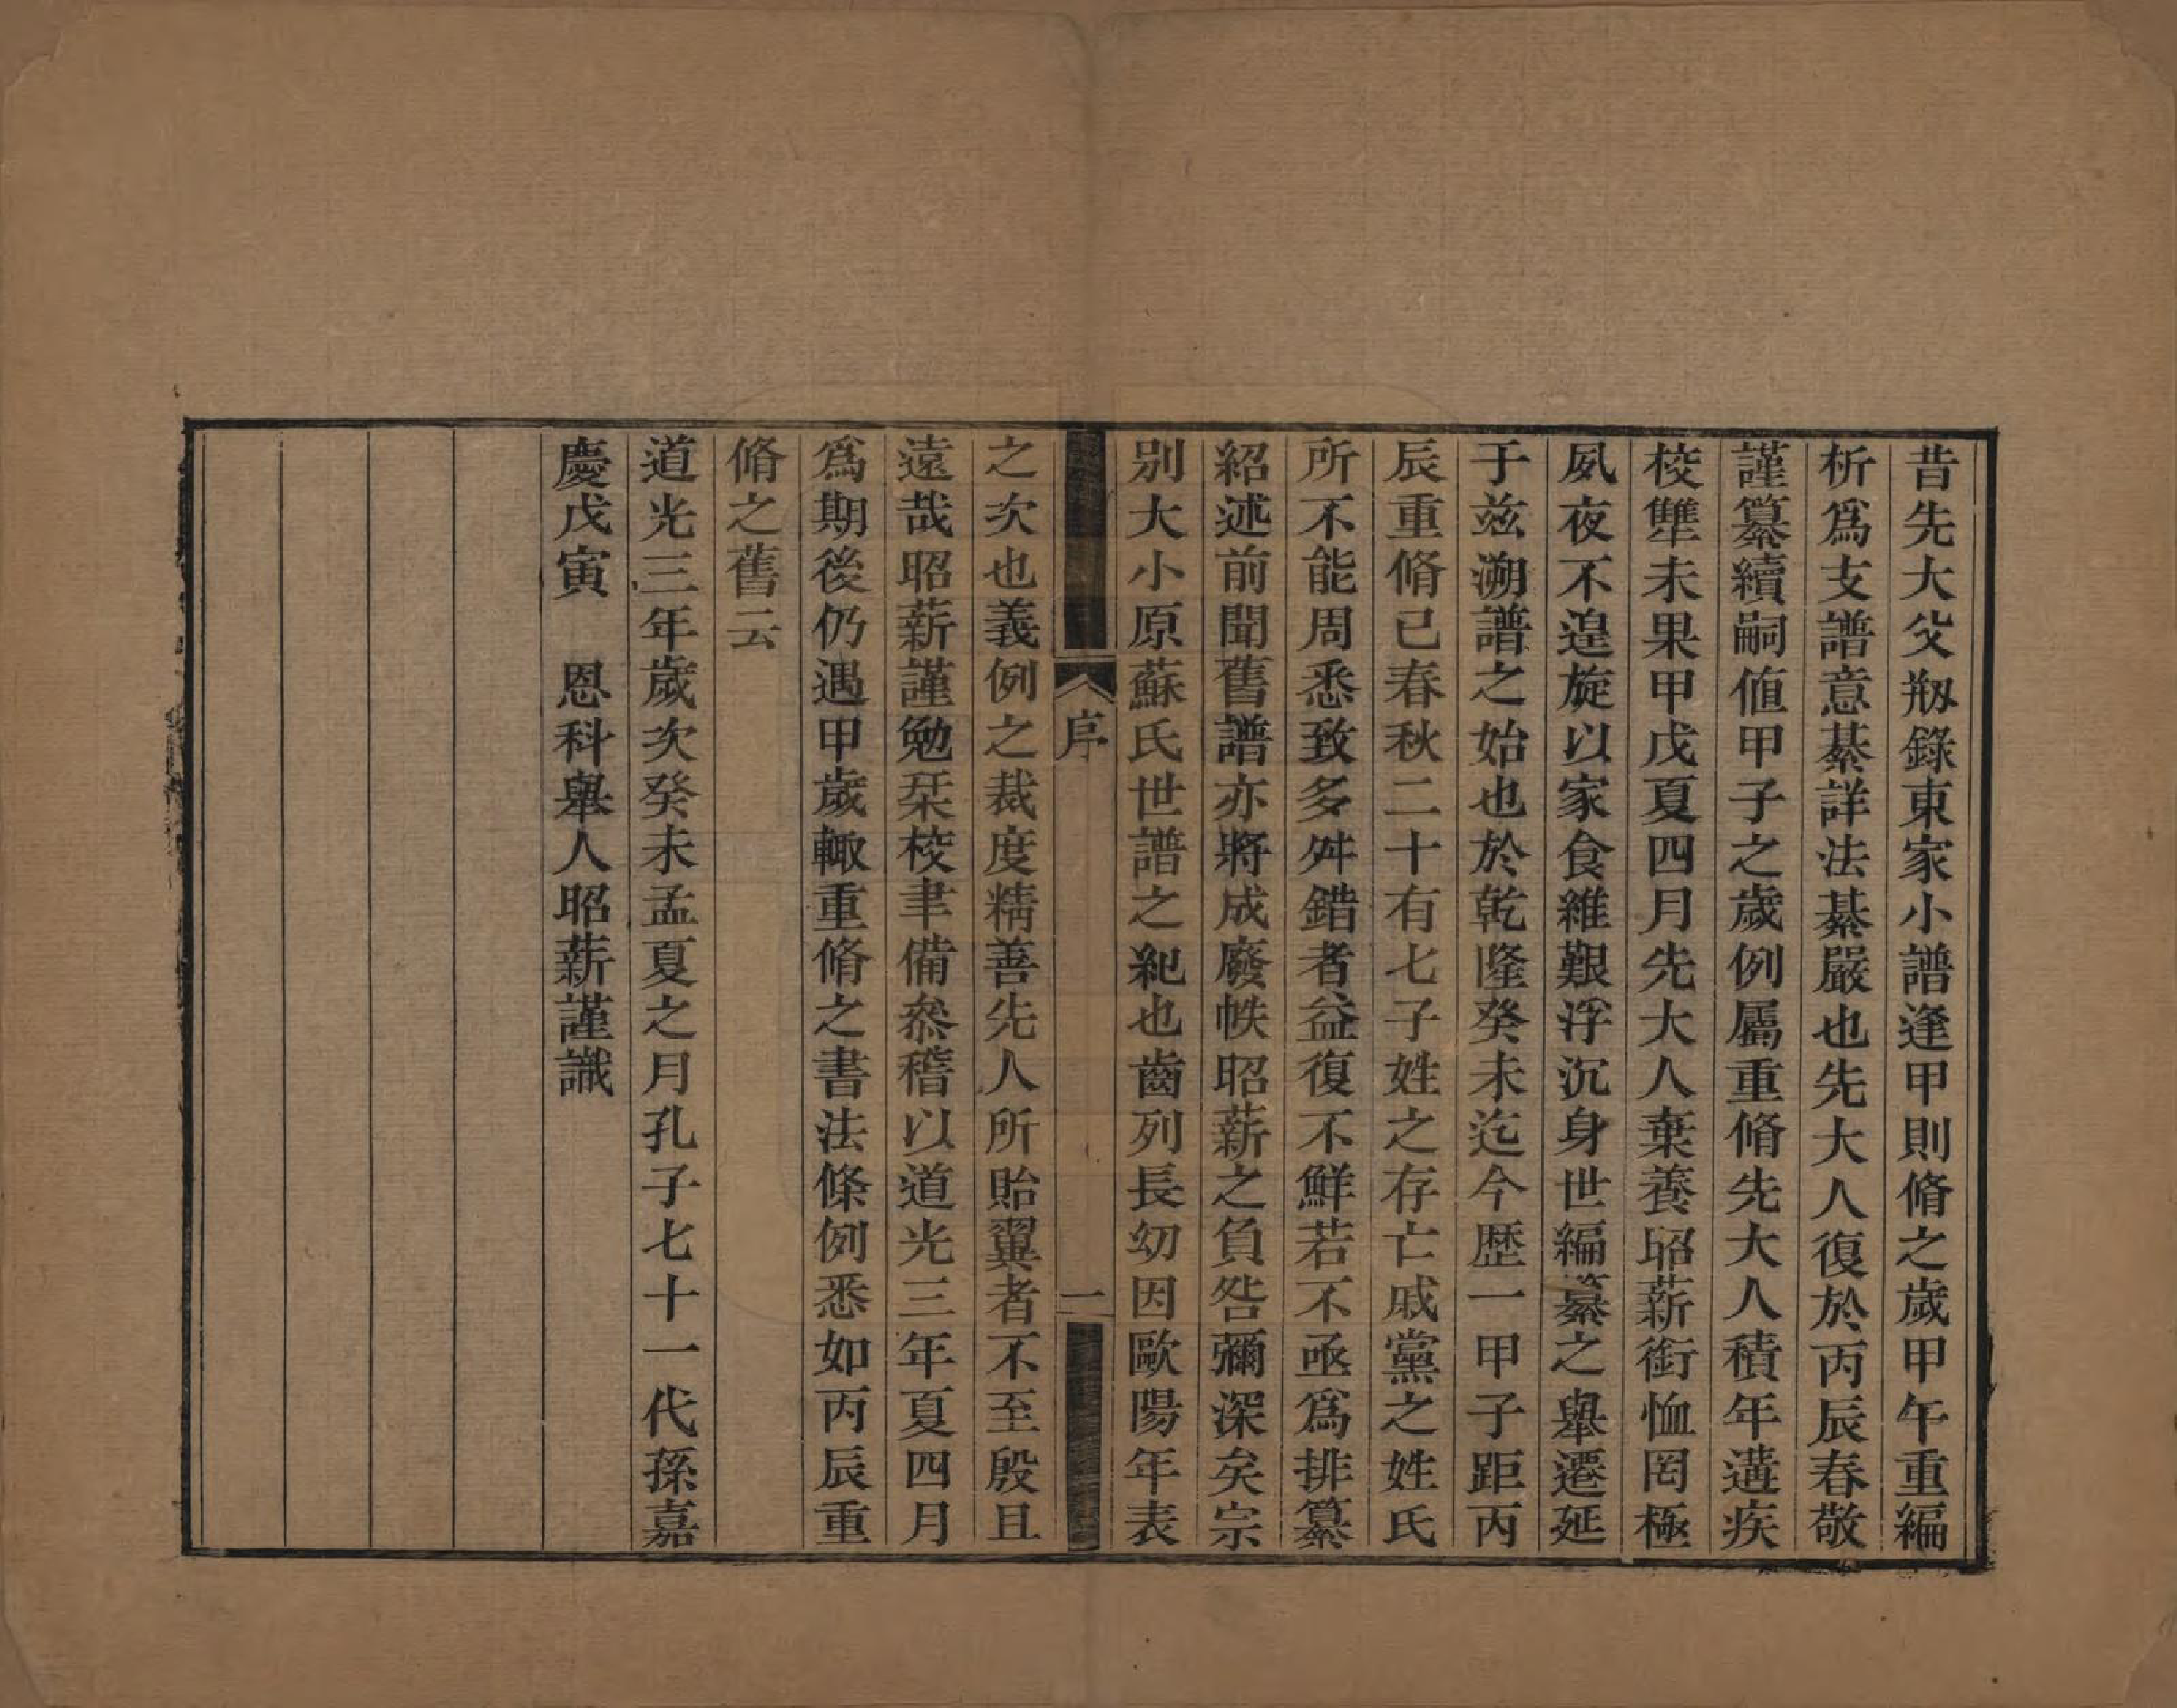 昔先大父剏錄東家小譜逢甲則脩之歲甲午重編
析爲支譜意綦詳法綦嚴也先大人復於丙辰春敬
謹纂續嗣値甲子之歲例屬重脩先大人積年遘疾
校讐未果甲戊夏四月先大人棄養昭薪銜恤罔極
夙夜不遑旋以家食維艱浮沉身世編纂之舉遷延
于兹溯譜之始也於乾隆癸未迄今歷一甲子距丙
辰重脩已春秋二十有七子姓之存亡戚黨之姓氏
所不能周悉致多舛錯者益復不鮮若不亟爲排纂
紹述前聞舊譜亦將成廢帙昭薪之負咎彌深矣宗
別大小原蘇氏世譜之紀也齒列長幼因歐陽年表
序 一
之次也義例之裁度精善先人所貽翼者不至殷且
遠哉昭薪謹勉栞校聿備叅稽以道光三年夏四月
爲期後仍遇甲歲輙重脩之書法條例悉如丙辰重
脩之舊云
道光三年歲次癸未孟夏之月孔子七十一代孫嘉
慶戊寅 恩科舉人昭薪謹識